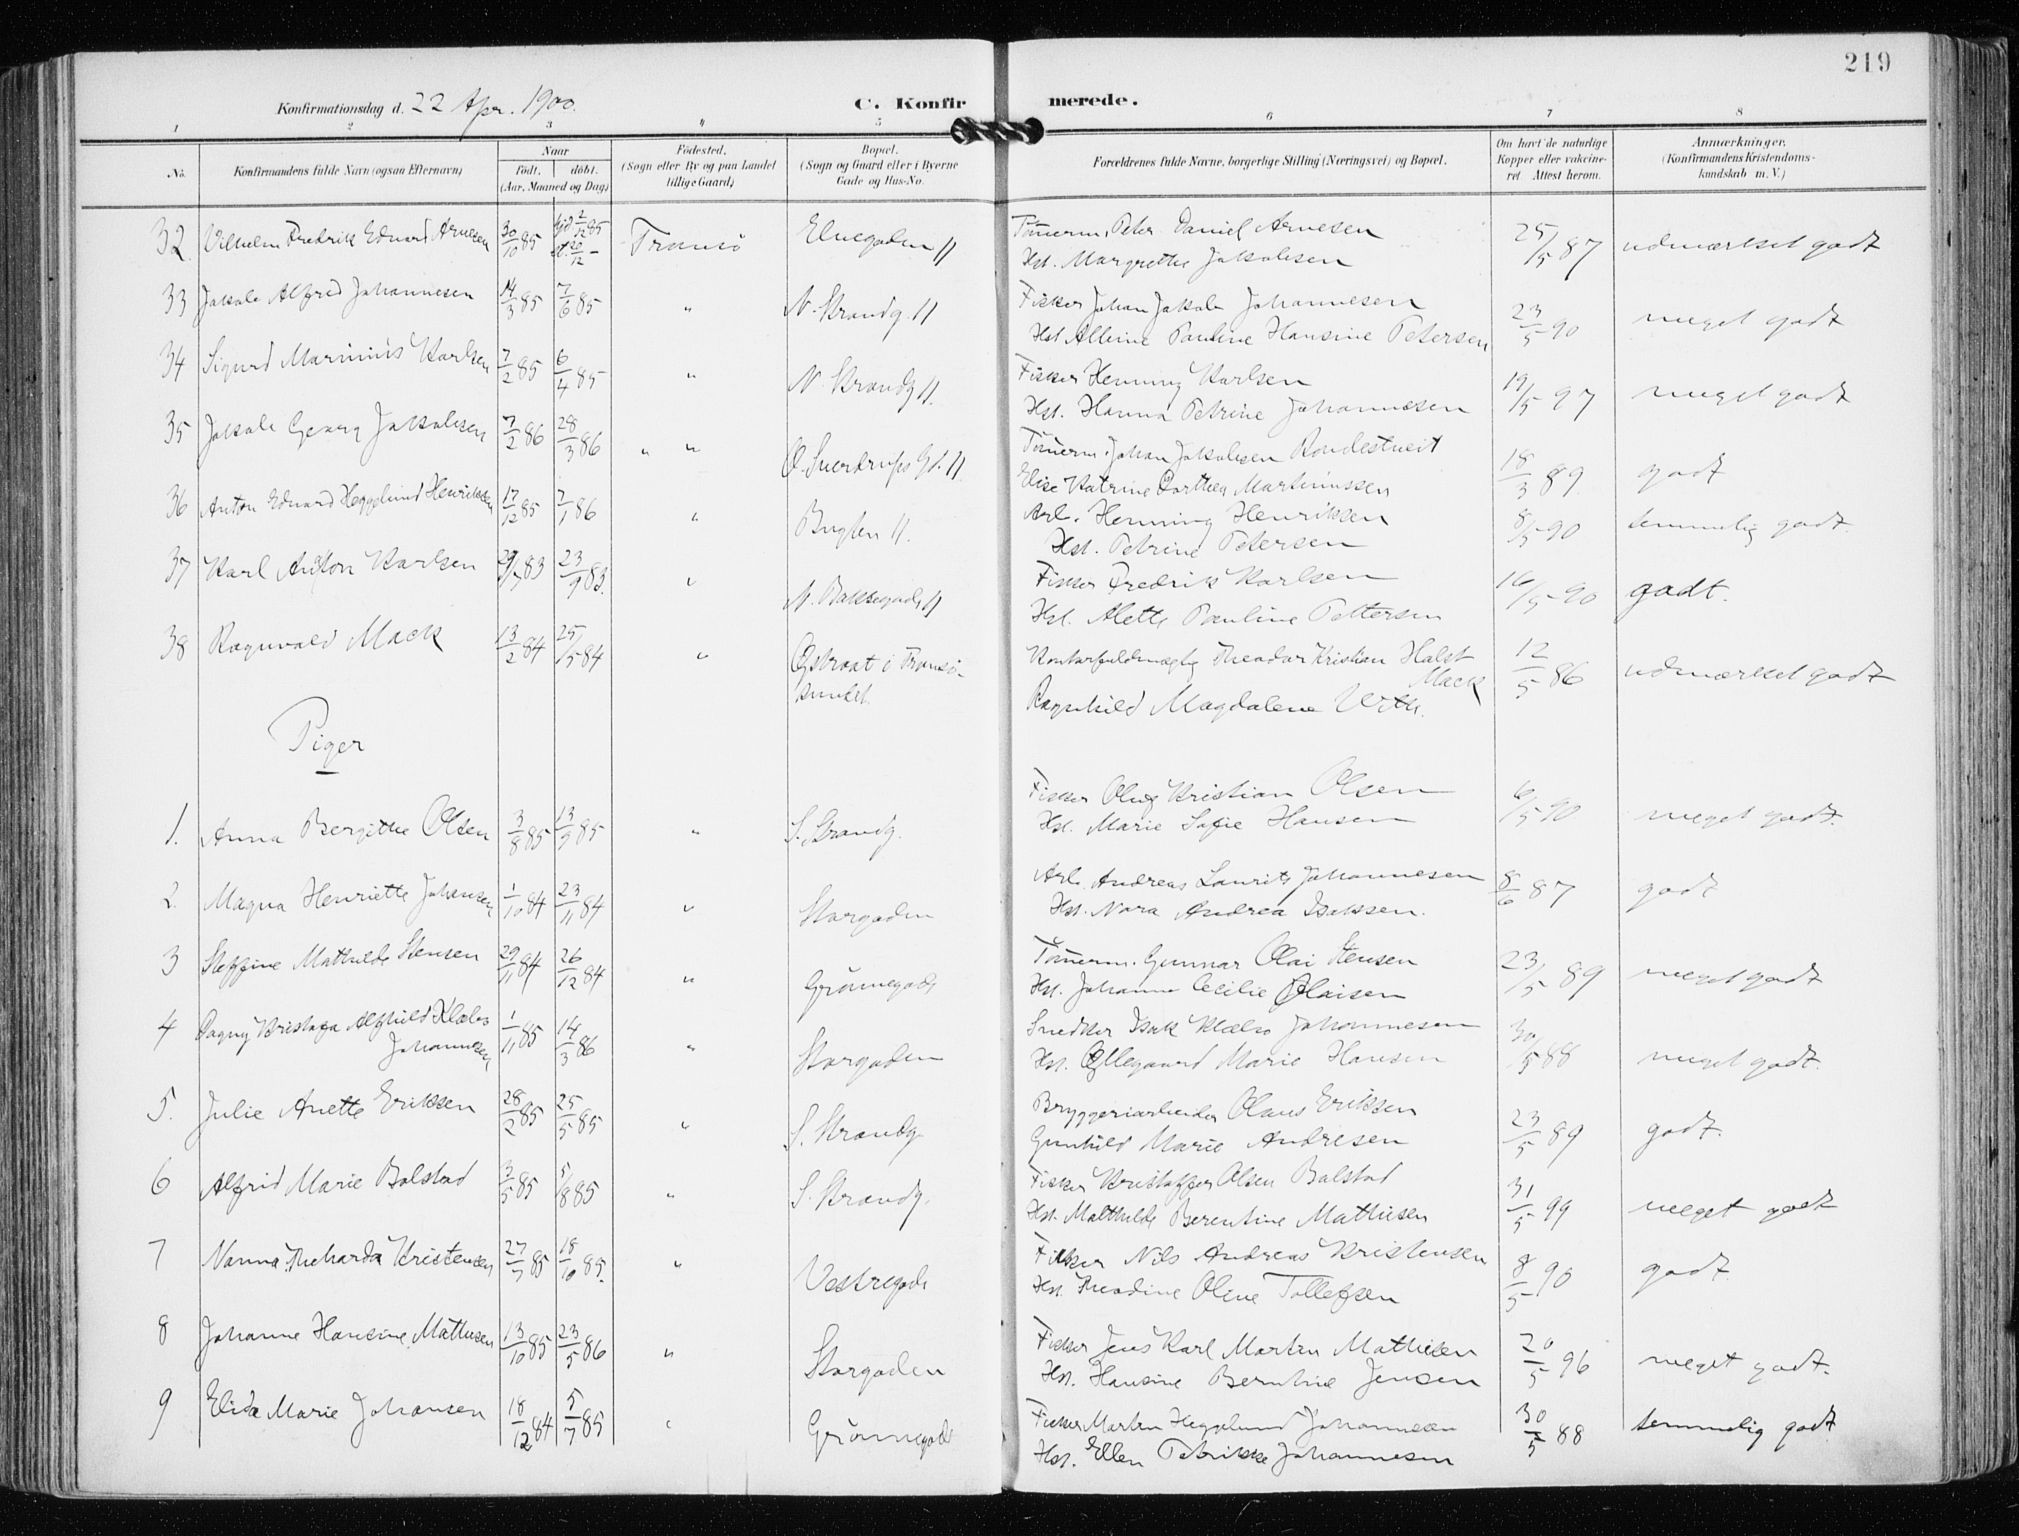 219
Konfirmationsdag d. 22 Apr. 1900.
C. Konfirmerede.
1 2 3 4 5 6 7 8
No.
Konfirmandens fulde Navn (ogsaa Efternavn)
Naar
født. døbt.
(Aar, Maaned og Dag)
Fødested.
(Sogn eller By og paa Landet
tillige Gaard)
Bopæl.
(Sogn og Gaard eller i Byerne
Gade og Hus-No.
Forældrenes fulde Navne, borgerlige Stilling (Næringsvei) og Bopæl.
Om havt de naturlige
Kopper eller vakcine-
ret. Attest herom.
Anmærkninger.
(Konfirmandens Kristendoms-
kundskab m. V.)
32. Vilhelm Fredrik Edvard Arnesen 30/10 85 2/12 85 Tromsø Elvegaden Tømerm. Peter Daniel Arnesen 25/5 87 udmærket godt
20/12 –
Hst. Margrethe Jakobsen
33 Jakob Alfred Johannesen 14/3 85 7/6 85 " N. Strandg. Fisker Johan Jakob Johannesen 23/5 90 meget godt
Hst. Albine Pauline Hansine Petersen
34 Sigurd Marinius Karlsen 7/2 85 6/4 85 " N. Strandg. Fisker Henning Karlsen 19/5 97 meget godt
Hst. Hanna Petrine Johannesen
35 Jakob Georg Jakobsen 7/2 86 28/3 86 " " O. Sverdrups Gd. Tømerm. Johan Jakobsen Rondestveit 18/3 89 godt
Elise Katrine Dorthea Martinussen
36 Anton Edvard Heggelund Henriksen 17/12 85 7/1 86 " Bugten Arb. Henning Henriksen 8/5 90 temmelig godt.
Hst. Petrine Petersen
37 Karl Anton Karlsen 29/7 83 23/9 83. " N. Bakkegade Fisker Fredrik Karlsen 16/5 90 godt.
Hst. Alette Pauline Pettersen
38 Ragnvald Mack 13/2 84 25/5 84 " Østraat i Tromsø- Kontorfuldmægtig Theodor Kristian Halst 12/5 86 udmærket godt
sundet. Mack
Ragnhild Magdalene Wirth.
Piger
1. Anna Bergithe Olsen 3/8 85 13/9 85 " S. Strandg. Fisker Oluf Kristian Olsen 6/5 90 meget godt.
Hst. Marie Sofie Hansen
2. Magna Henriette Johansen 1/10 84 23/11 84 " Storgaden Arb. Andreas Laurits Johannesen 8/6 87 godt
Hst. Nora Andrea Isaksen.
3 Steffine Mathilde Stensen 29/11 84 26/12 84 " Grønnegade Tømerm. Gunnar Olai Stensen 23/5 89 meget godt
Hst. Johanna Cecilie Olaisen
4 Dagny Kristofa Alfhild Klæbo 1/11 85 14/3 86 " Storgaden Snedker Isak Klæbo Johannesen 30/5 88 meget godt.
Johannesen
Hst. Ellegaard Marie Hansen
5. Julie Anette Eriksen 28/2 85 25/5 85 " S. Strandg. Bryggeriarbeider Olaus Eriksen 23/5 89 godt.
Gunhild Marie Andresen
6 Alfrid Marie Bolstad 3/5 85 5/8 85 " S. Strandg. Fisker Kristoffer Olsen Bolstad 31/5 99 meget godt
Hst. Mathilde Berentine Mathisen
7 Nanna Richarda Kristensen 27/7 85 18/10 85. " Vestregade Fisker Nils Andreas Kristensen 8/5 90 godt.
Hst. Theodine Oline Tollefsen
8 Johanne Hansine Mathisen 13/10 85 23/5 86 " Storgaden Fisker Jens Karl Martin Mathisen 20/5 96 meget godt.
Hst. Hansine Berntine Jensen
9 Elida Marie Johansen 18/12 84 5/7 85 " Grønnegade Fisker Martin Heggelund Johannesen 30/5 88 temmelig godt
Hst. Ellen Petrikke Johannesen